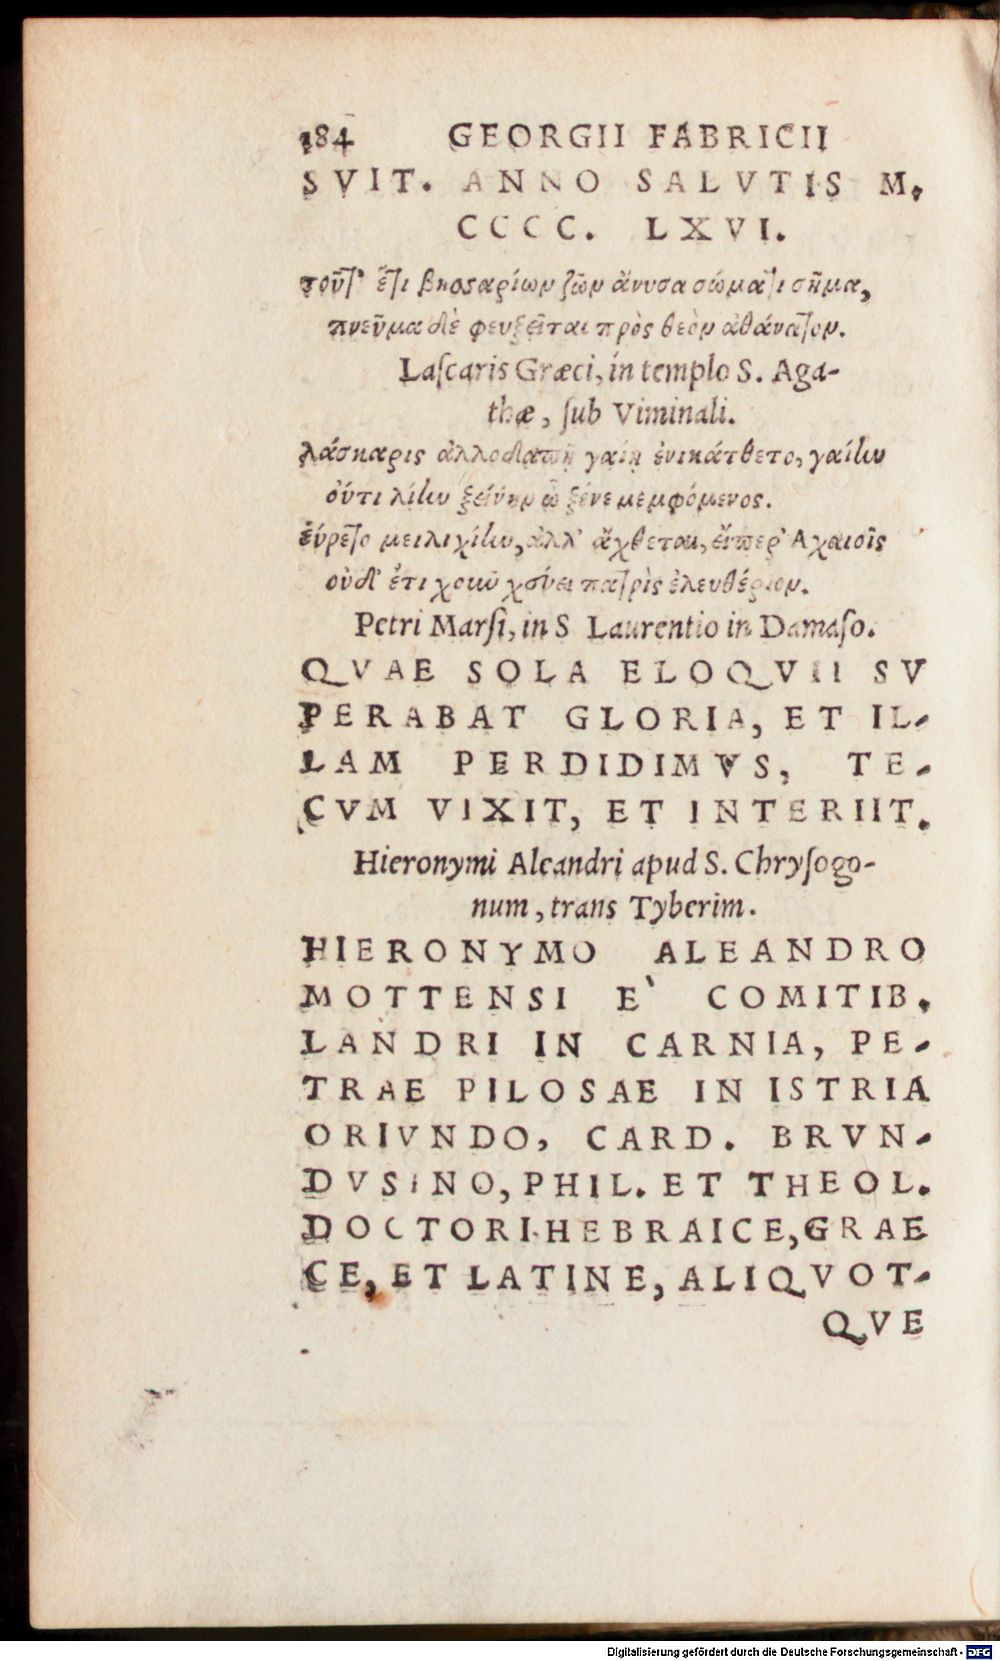 184 GEORGII FABRICII
SVIT. ANNO SALVTIS M.
CCCC. LXVI.
τοῦτ' ἔτι βησσαρίων ζῶν ἄνυσα σώματι σῆμα,
πνεῦμα δὲ φευξεῖται πρὸς θεὸν ἀθάνατον.
Laſcaris Græci, in templo S. Aga-
thæ, ſub Viminali.
λάσκαρις ἀλλοδαπῇ γαίῃ ἐνικάτθετο, γαίην
οὔτι λίην ξείνην ὦ ξένε μεμφόμενος.
εὕρετο μειλιχίην, ἀλλ' ἄχθεται, εἴπερ' Αχαιοῖς
οὐδ' ἔτι χοῦν χεύει πατρὶς ἐλευθέριον.
Petri Marſi, in S Laurentio in Damaſo.
QVAE SOLA ELOQVII SV
PERABAT GLORIA, ET IL-
LAM PERDIDIMVS, TE-
CVM VIXIT, ET INTERIIT.
Hieronymi Aleandri apud S. Chryſogo-
num, trans Tyberim.
HIERONYMO ALEANDRO
MOTTENSI E` COMITIB.
LANDRI IN CARNIA, PE-
TRAE PILOSAE IN ISTRIA
ORIVNDO, CARD. BRVN-
DVSINO, PHIL. ET THEOL.
DOCTORI HEBRAICE, GRAE
CE, ET LATINE, ALIQVOT-
QVE
Digitalisierung gefördert durch die Deutsche Forschungsgemeinschaft - DFG